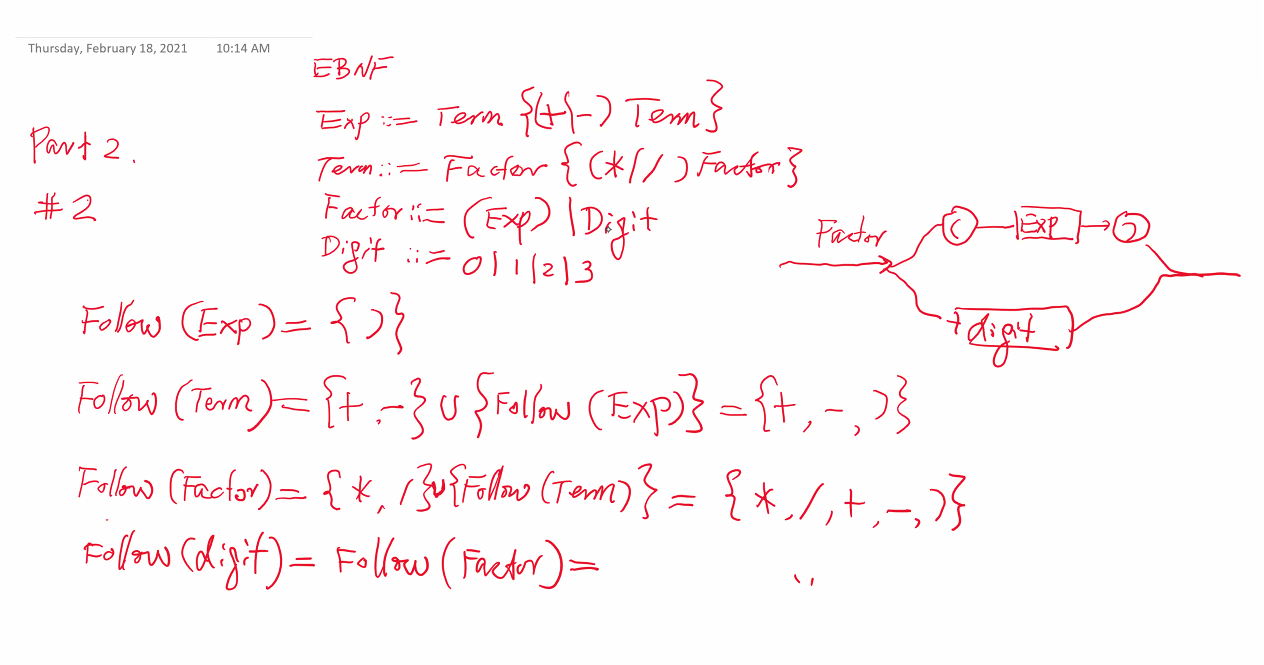 Thursday, February 18, 2021 10:14 AM
EBNF
Exp ::= Term {(+|-) Term}
Part 2.
Term ::= Factor {(*|/) Factor}
#2
Factor ::= (Exp) | Digit
Digit ::= 0|1|2|3
Factor
( Exp )
digit
Follow (Exp) = { ) }
Follow (Term) = {+, -} ∪ {Follow (Exp)} = {+, -, )}
Follow (Factor) = {*, /} ∪ {Follow (Term)} = {*, /, +, -, )}
Follow (digit) = Follow (Factor) = "